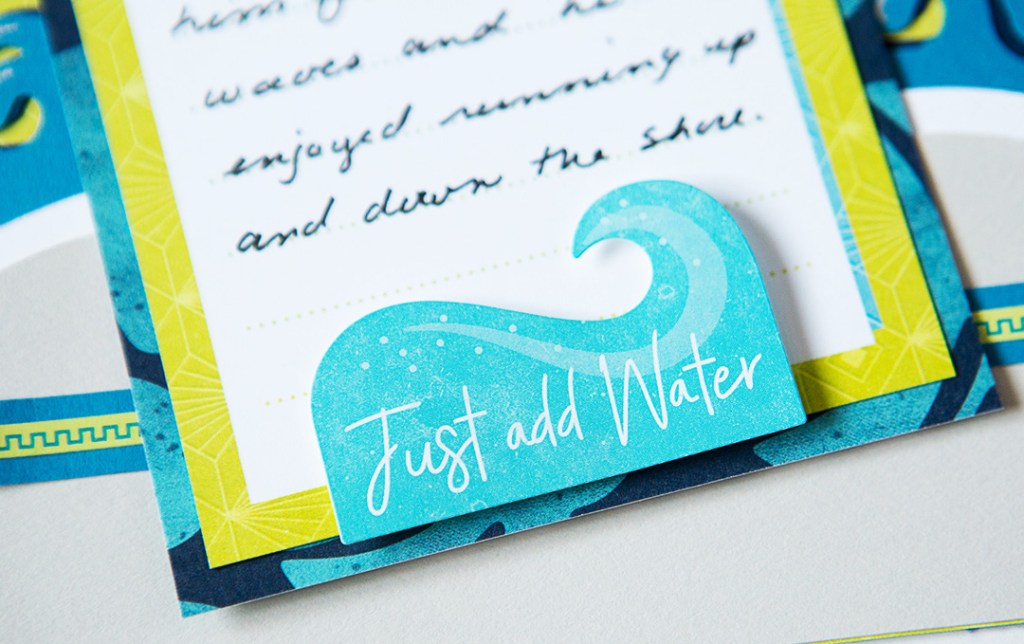 waves and he
enjoyed running up
and down the shore.
Just add Water